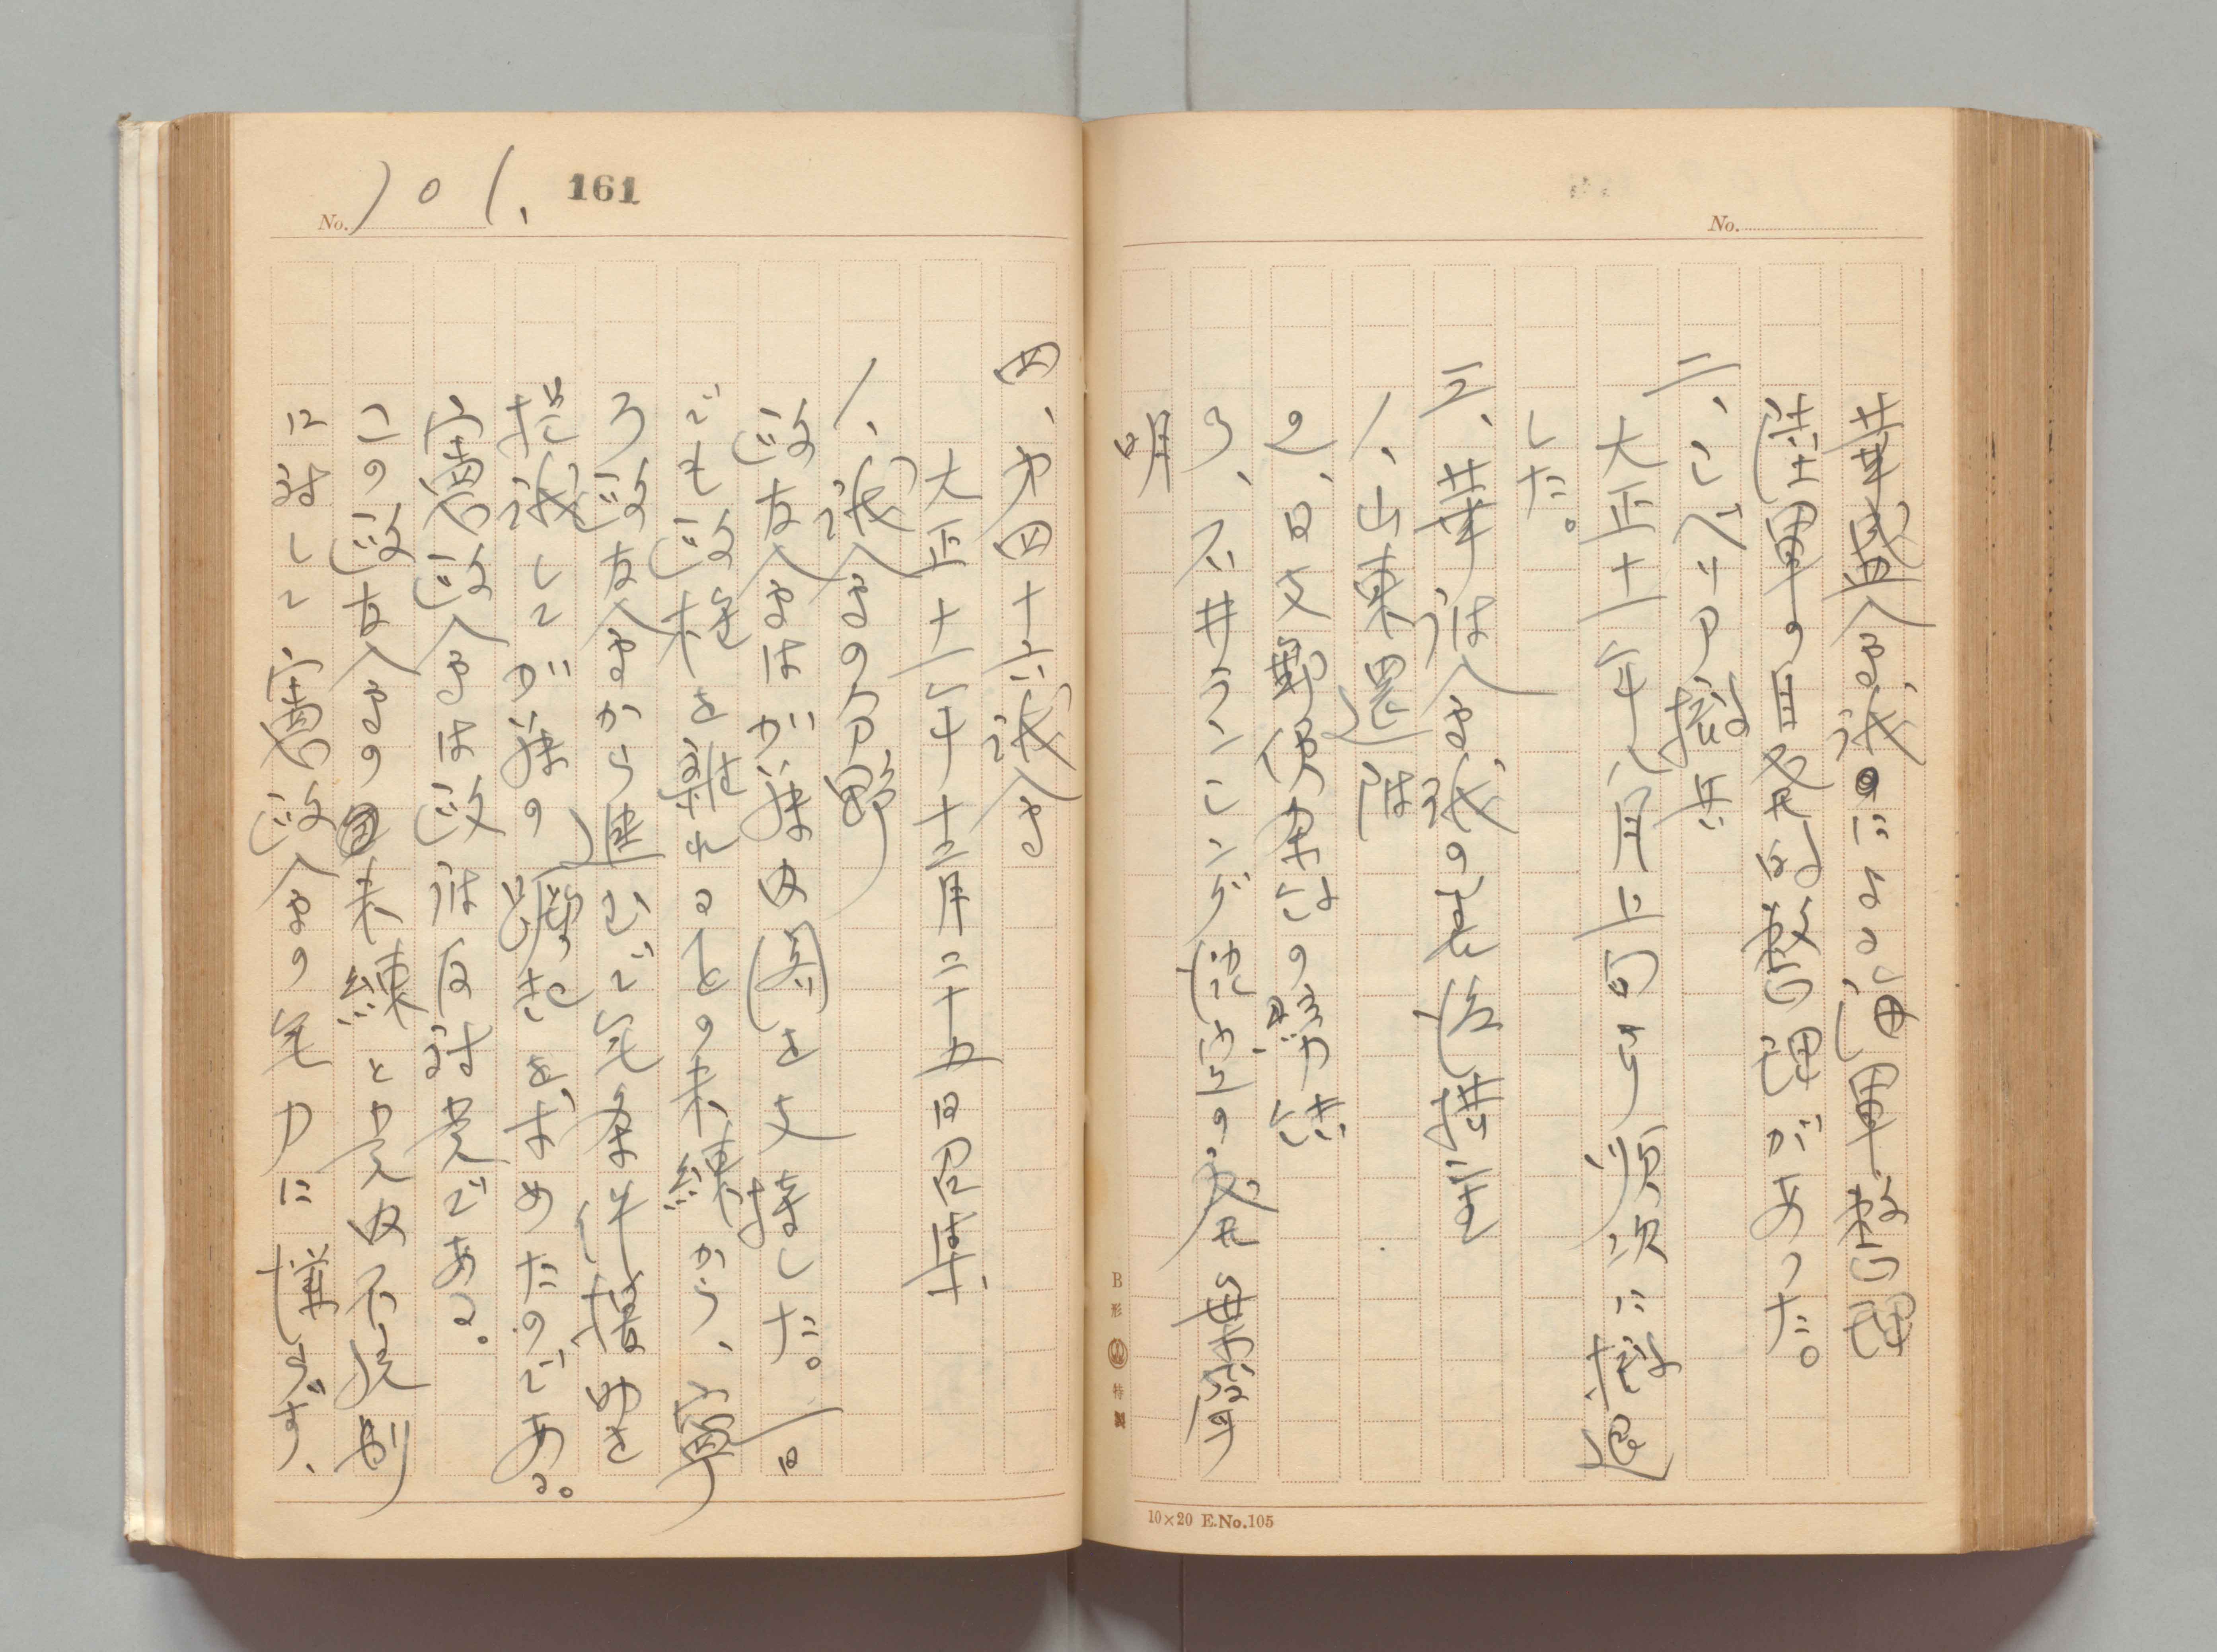 No.
華盛会議による海軍整理
陸軍の自発的整理があった。
二、シベリア撤兵
大正十一年八月上旬より順次に撤退
した。
三、華府会議の善後措置
1、山東還附
2、日支郵便の締結
3、石井ランシング協定の廃棄声
明
B形 特製
10×20 E.No.105
No. 101. 161
四、第四十六議会
大正十一年十二月二十五日召集、
1、議会の分野
政友会は加藤内閣を支持した。一日
でも政権を離れることの未練から、寧
ろ政友会から進んで無条件援助を
提議して加藤の蹶起をすすめたのである。
憲政会は政府反対党である。
この政友会の未練と党内不統制
に対して憲政会の無力に慊らず、